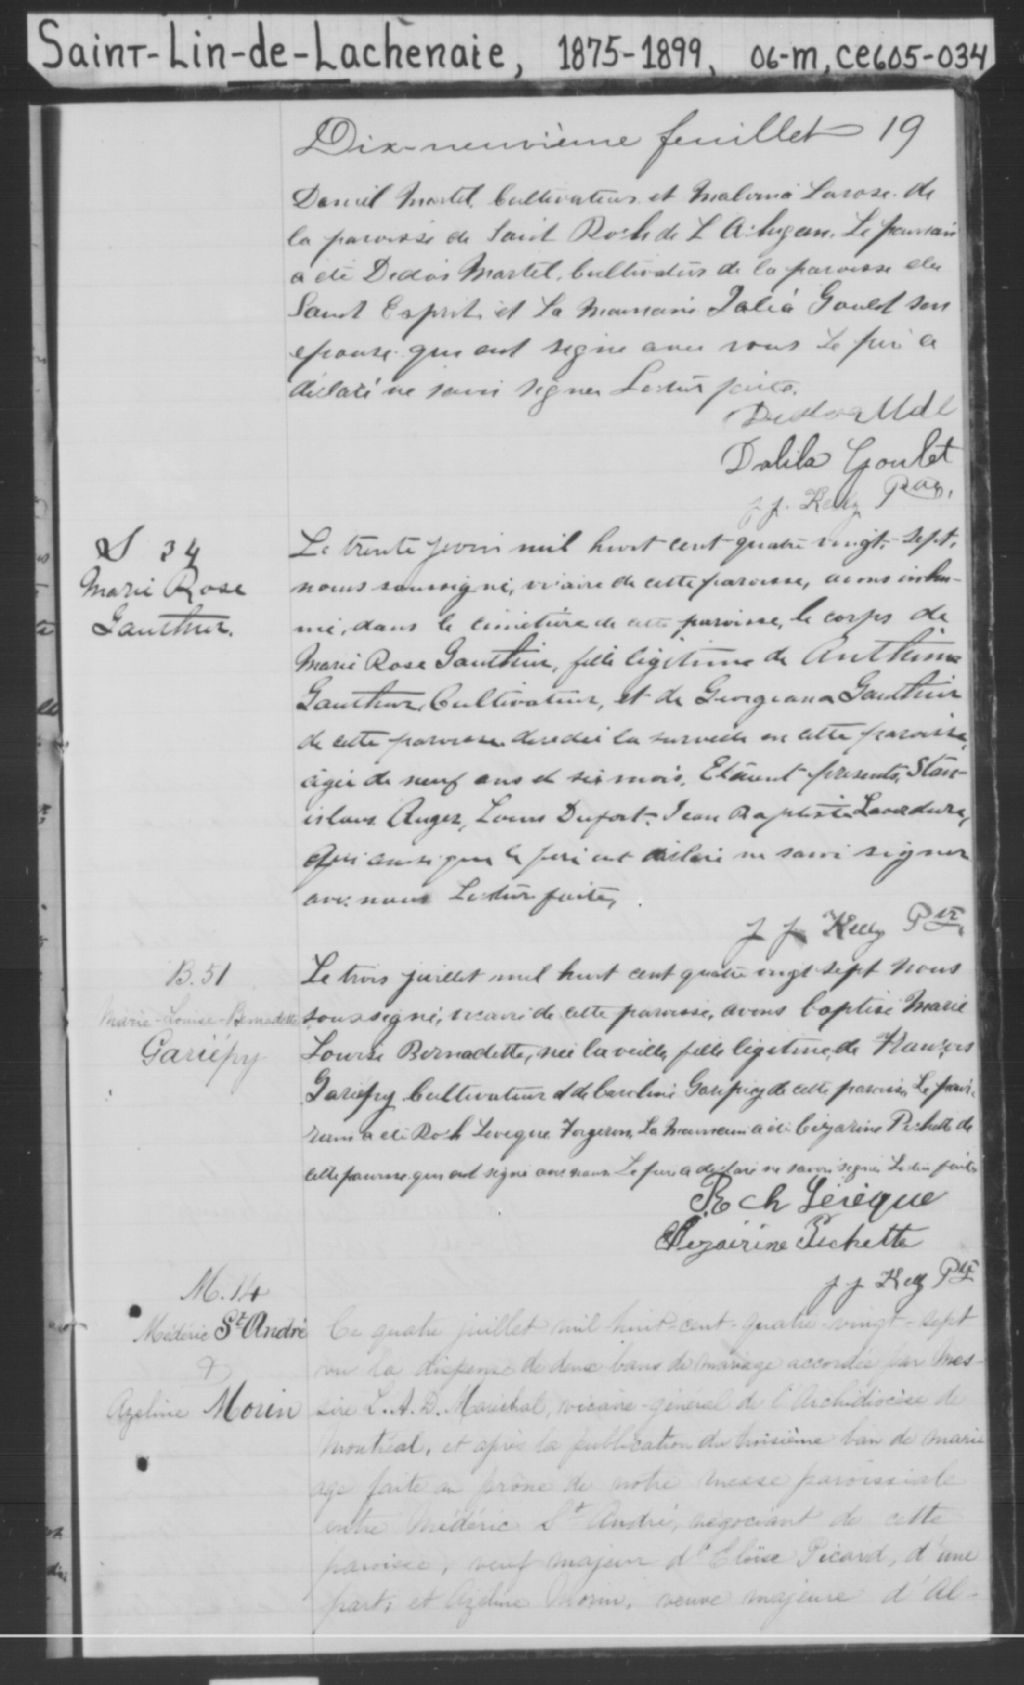 Saint-Lin-de-Lachenaie, 1875-1899, 06-M, CE605-034
Dix-neuvième feuillet 19
Daniel Martel, Cultivateur et Malvina Larose de
la paroisse de Saint Roch de L'Achigan. Le parrain
a été Martel, Cultivateur de la paroisse du
Saint Esprit et la marraine Goulet son
épouse qui ont signé avec nous Le père a
déclaré ne savoir signer Lecture faite.
Dalila Goulet
J. J. Kelly Ptre.
S 34
Marie Rose
Gauthier.
Le trente juin mil huit cent quatre vingt-sept,
nous soussigné, vicaire de cette paroisse, avons inhu-
mé, dans le cimetière de cette paroisse, le corps de
Marie Rose Gauthier, fille légitime de Anthime
Gauthier, Cultivateur, et de Georgeana Gauthier
de cette paroisse décédée la surveille en cette paroisse,
âgée de neuf ans et six mois. Etaient présents, Stan-
islaus Auger, Louis Dufort, Jean Baptiste Laverdure,
qui ainsi que le père ont déclaré ne savoir signer
avec nous Lecture faite,
J J Kelly Ptre.
B. 51
Marie-Louise-Bernadette
Gariépy
Le trois juillet mil huit cent quatre vingt sept nous
soussigné, vicaire de cette paroisse, avons baptisé Marie
Louise Bernadette, née la veille, fille légitime de François
Gariépy Cultivateur et de Caroline Gariépy de cette paroisse, Le par-
rain a été Roch Leveque Forgeron, La Marraine a été Cézarine Pichette de
cette paroisse qui ont signé avec nous. Le père a déclaré ne savoir signer Lecture faite
Roch Lévèque
Cézairine Pichette
J J Kelly Ptre
M. 14
Médéric St André
&
Azeline Morin
Ce quatre juillet mil huit-cent-quatre-vingt-sept
vu la dispense de deux bans de mariage accordée par Mes-
sire L. A. D. Maréchal, vicaire-général de l'Archidiocèse de
Montréal, et après la publication du troisième ban de mari-
age faite au prône de notre messe paroissiale
entre Médéric St André, négociant de cette
paroisse, veuf majeur d'Eloïse Picard, d'une
part; et Azeline Morin, veuve majeure d'Al-